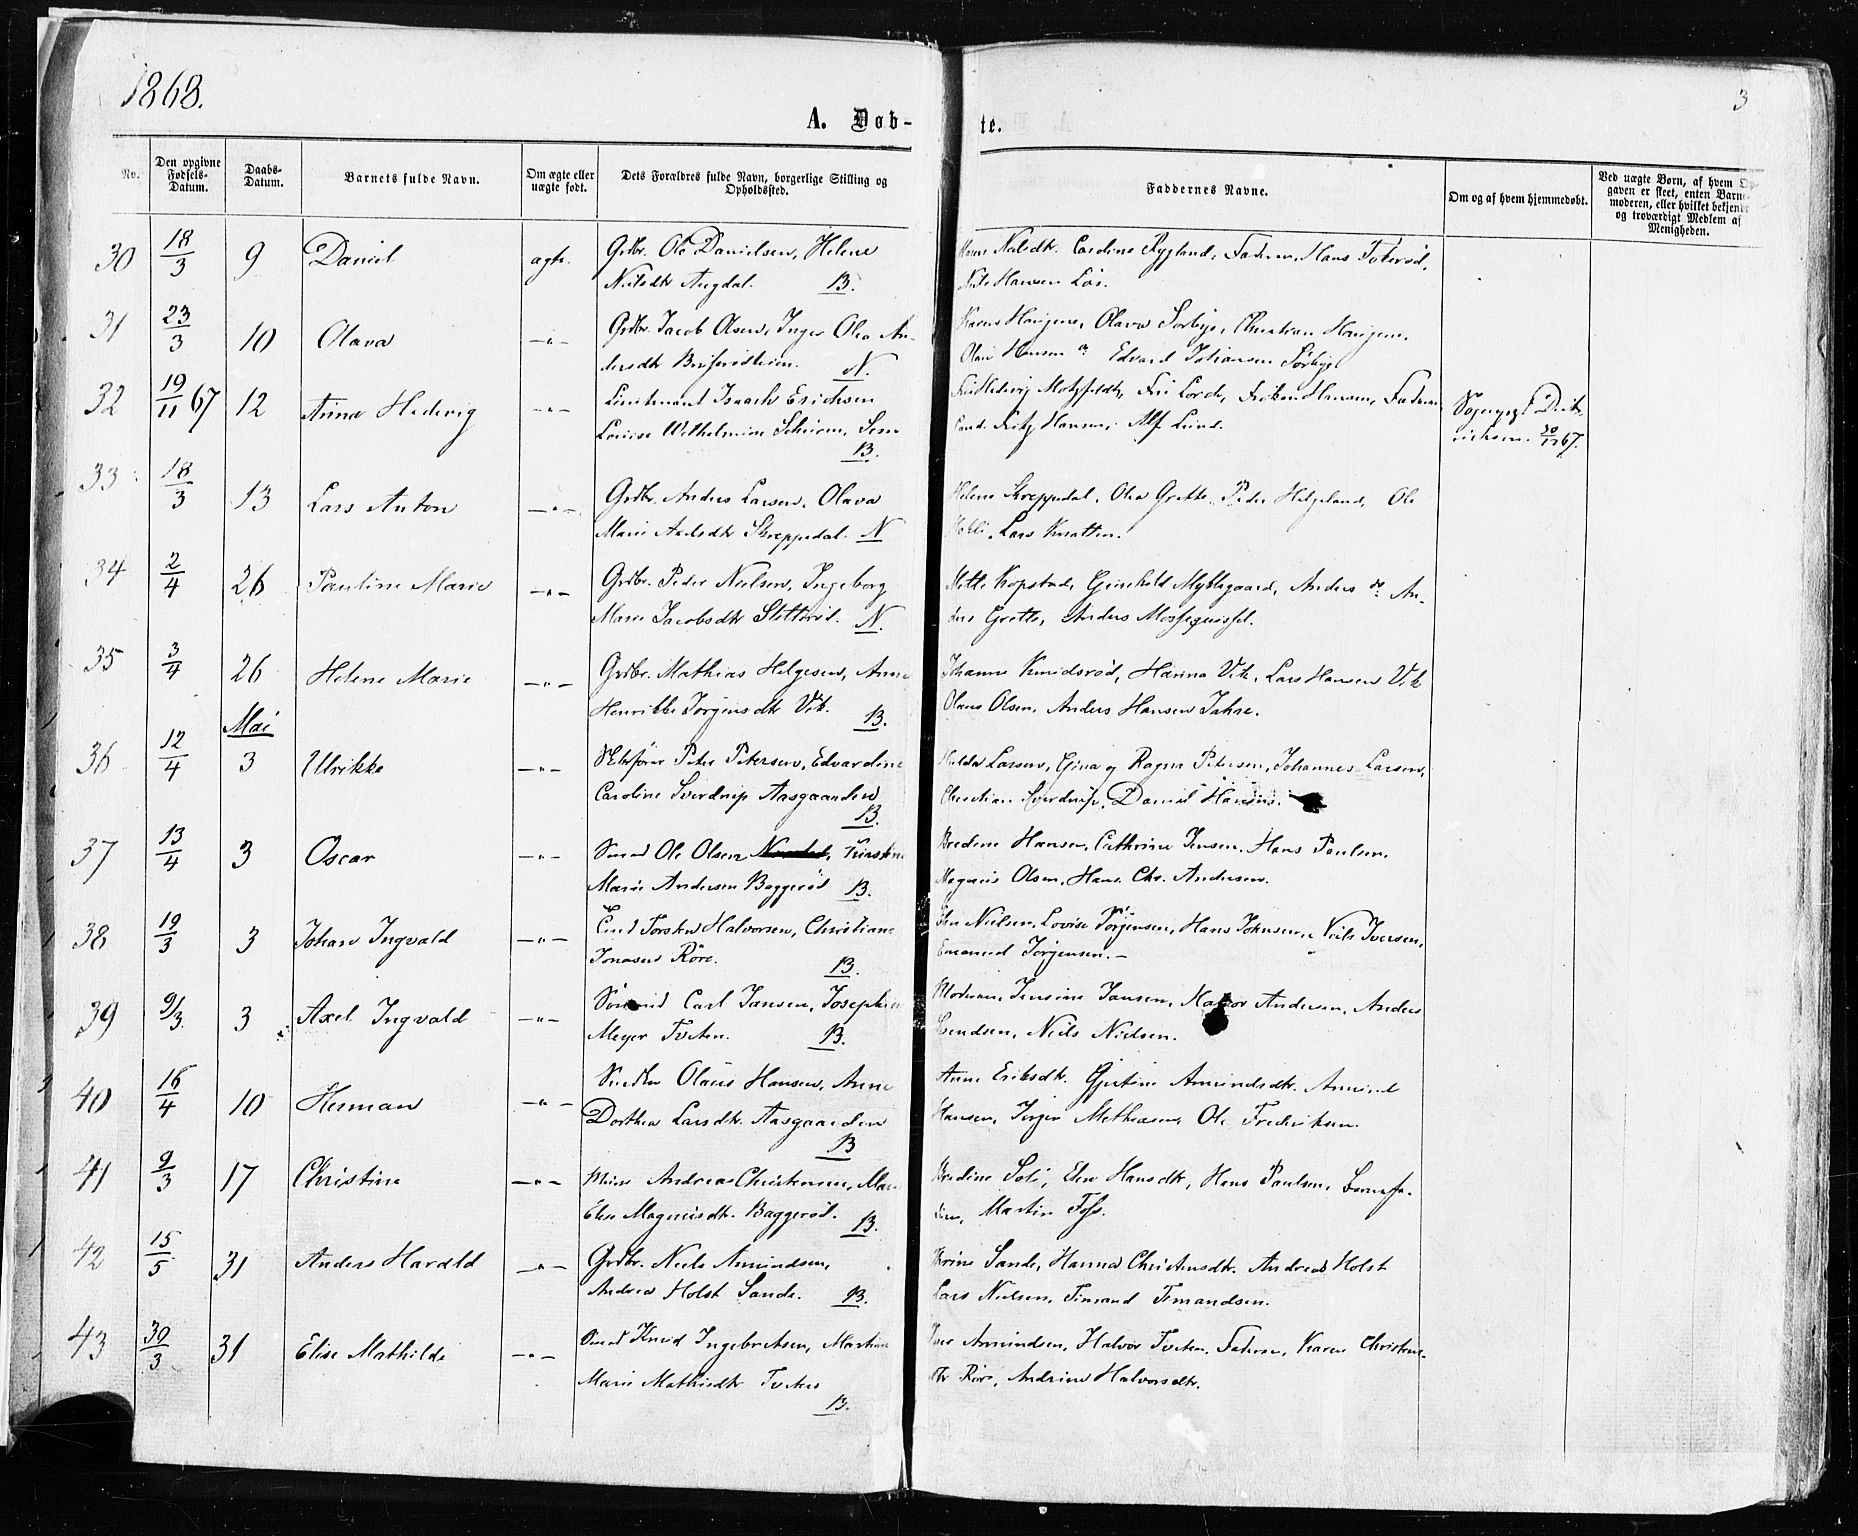 1868.
3
A. Døb-
te.
No.
Den opgivne Fødsels-Datum.
Daabs-Datum.
Barnets fulde Navn.
Om ægte eller uægte født.
Dets Forældres fulde Navn, borgerlige Stilling og Opholdssted.
Faddernes Navne.
Om og af hvem hjemmedøbt.
Ved uægte Børn, af hvem Op-
gaven er skeet, enten Barne-
moderen, eller hvilket bekjendt
og troværdigt Medlem af
Menigheden.
30 18/3 9 Daniel ægte. Grdbr. Ole Danielsen, Helene
Nielsdtr Augdal. B.
Caroline Rygland, Faderen, Hans
Niels Hansen Løs.
31 23/3 10 Olava —"— Grdbr. Jacob Olsen, Inger Olea An-
dersdtr N.
Karen Haugene, Olava Sørbye, Christian Haugene,
Hansen og Edvard Johansen Sørbye
32 19/11 67 12 Anna Hedevig —"— Lieutenant Isaach Erichsen
Louise Wilhelmine Sem
B.
Motzfeldt, Frk Hansen, Faderen
Cand. Fritz Hansen, Alf Lund.
67.
33 18/3 13 Lars Anton —"— Grdbr. Anders Larsen, Olava
Marie Axelsdtr Skreppedal. N
Helene Skreppedal, Olea Grette, Peder Helgeland, Ole
Lars Knatten.
34 2/4 26 Pauline Marie —"— Grdbr. Peder Nielsen, Ingeborg
Marie Jacobsdtr N.
Mette Kopstad, Gunhild Myklegaard, Anders do An-
ders Grette, Anders
35 3/4 26 Helene Marie —"— Grdbr. Mathias Helgesen, Anne
Henrikke Jørgensdtr Vik. B.
Johanne Knudsrød, Hanna Vik, Lars Hansen Vik
Olaus Olsen, Anders Hansen Jahre.
Mai
36 12/4 3 Ulrikke —"— Skibsfører Peter Petersen, Edvardine
Caroline Sverdrup Aasgaarden
B.
Hulda Larsen, Gina og Ragna Petersen, Johannes Larsen,
Christian Sverdrup, Daniel Hansen.
37 13/4 3 Oscar —"— Smed Ole Olsen Kirstine
Marie Andersen Baggerød B.
Bredine Hansen, Cathrine Jensen, Hans Paulsen,
Magnus Olsen, Hans Chr. Andersen.
38 19/3 3 Johan Ingvald —"— Torsten Halvorsen, Christiane
Jonasen Røre. B.
Nielsen, Lovise Jørgensen, Hans Johnsen, Niels Iversen,
Emanuel Jørgensen. —
39 9/3. 3 Axel Ingvald —"— Sømand Carl Jansen, Josephine
Meyer Tveten. B.
Moderen, Jensine Jansen, Halvor Andersen, Anders
Niels Nielsen.
40 16/4 10 Herman —"— Snedker Olaus Hansen, Anne
Dorthea Larsdtr. Aasgaarden
B
Anne Eriksdtr. Gjertine Amundsdtr. Amund
Hansen, Jørgen Mathiasen, Ole Fredriksen.
41 9/3 17 Christine —"— Andreas Christensen, Maren
Elise Magnusdtr. Baggerød. B.
Bredine Soli, Elen Hansdtr, Hans Paulsen, Barnefa-
deren, Martin Foss.
42 15/5 31 Anders Harald —"— Grdbr. Niels Amundsen,
Andrea Holst Sande. B.
Sande, Hanna Christensdtr. Andreas Holst
Lars Nielsen, Timand Timandsen.
43 30/3 31 Elise Mathilde —"— Smed Knud Ingebretsen, Martine
Marie Mathisdtr Tveten
B.
Iver Amundsen, Halvor Tveten, Faderen, Karen Christens-
dtr Røre, Andrine Halvorsdtr.